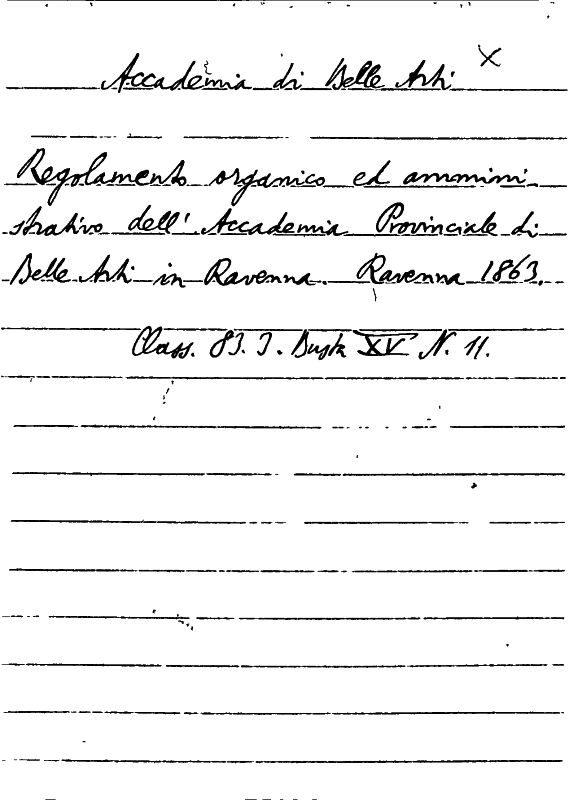 Accademia di Belle Arti X
Regolamento organico ed ammini-
strativo dell'Accademia Provinciale di
Belle Arti in Ravenna. Ravenna 1863.
Class. 83. I. Busta XV N. 11.